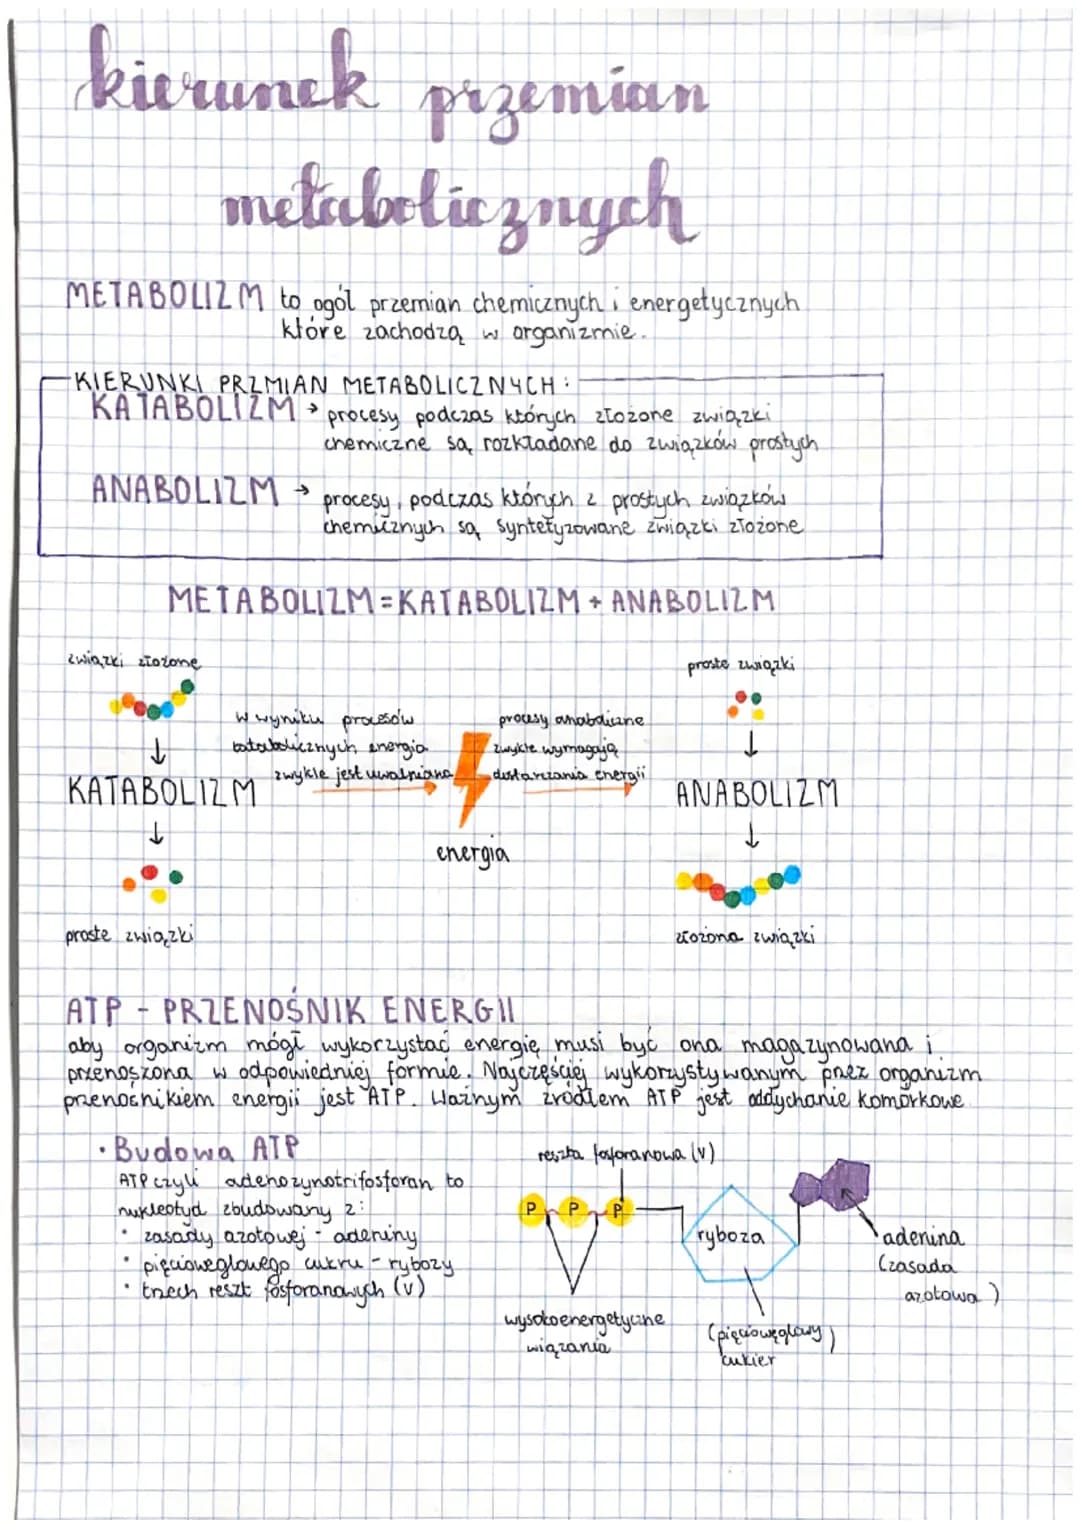 kierunek przemian
metabolicznych
METABOLIZM to ogół przemian chemicznych i energetycznych
które zachodzą w organizmie.
KIERUNKI PRZMIAN METABOLICZNYCH:
KATABOLIZM → procesy podczas których złożone związki
chemiczne są rozkładane do związków prostych
ANABOLIZM → procesy, podczas których z prostych związków
chemicznych są syntetyzowane związki złożone
METABOLIZM = KATABOLIZM + ANABOLIZM
związki złożone
proste związki
w wyniku procesów
katabolicznych energia
zwykle jest uwalniana
procesy anaboliczne
zwykle wymagają
dostarczania energii
KATABOLIZM
ANABOLIZM
energia
proste związki
złożona związki
ATP - PRZENOŚNIK ENERGII
aby organizm mógł wykorzystać energię musi być ona magazynowana i
przenoszona w odpowiedniej formie. Najczęściej wykorzystywanym przez organizm
przenośnikiem energii jest ATP. Ważnym źródłem ATP jest oddychanie komórkowe
• Budowa ATP
ATP czyli adenozynotrifosforan to
nukleotyd zbudowany z:
• zasady azotowej - adeniny
• pięciowęglowego cukru - rybozy
• trzech reszt fosforanowych (V)
reszta fosforanowa (V)
P P P
ryboza
adenina
(zasada
azotowa)
wysokoenergetyczne
wiązania
(pięciowęglowy)
cukier